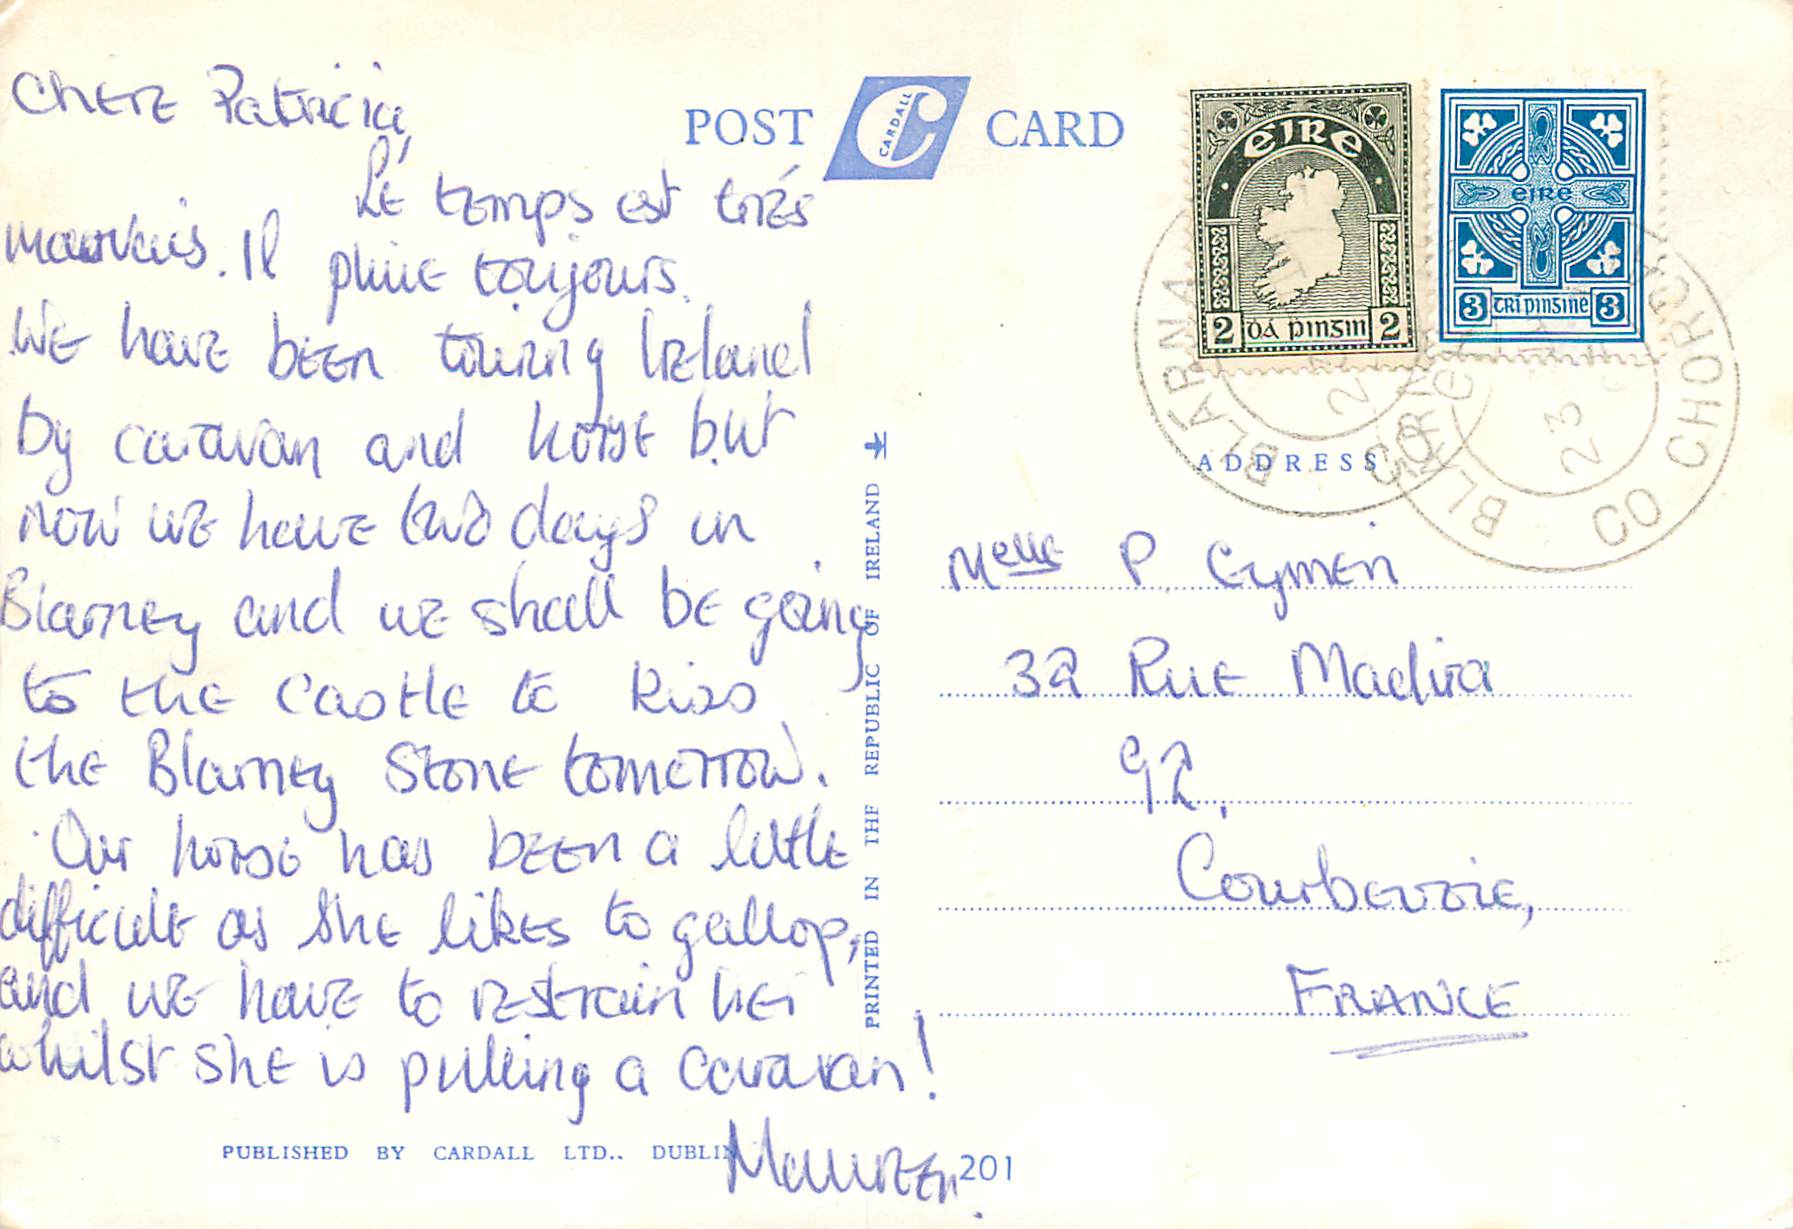 Chere Patricia,
Le temps est trés
mauvais. Il pluie toujours.
We have been touring Ireland
by caravan and horse but
now we have two days in
Blarney and we shall be going
to the Castle to kiss
the Blarney Stone tomorrow.
Our horse has been a little
difficult as she likes to gallop,
and we have to restrain her
whilst she is pulling a caravan!
Maureen.
PUBLISHED BY CARDALL LTD., DUBLIN
201
PRINTED IN THE REPUBLIC OF IRELAND
POST CARD
CARDALL
éire
2 dá pingin 2
éire
3 trí pinsine 3
BLARNA
CO CHORCAI
23
BLARNA
CO CHORCAI
23
ADDRESS
Melle P. Eymen
32 Rue Madira
92.
Courbevoie,
FRANCE